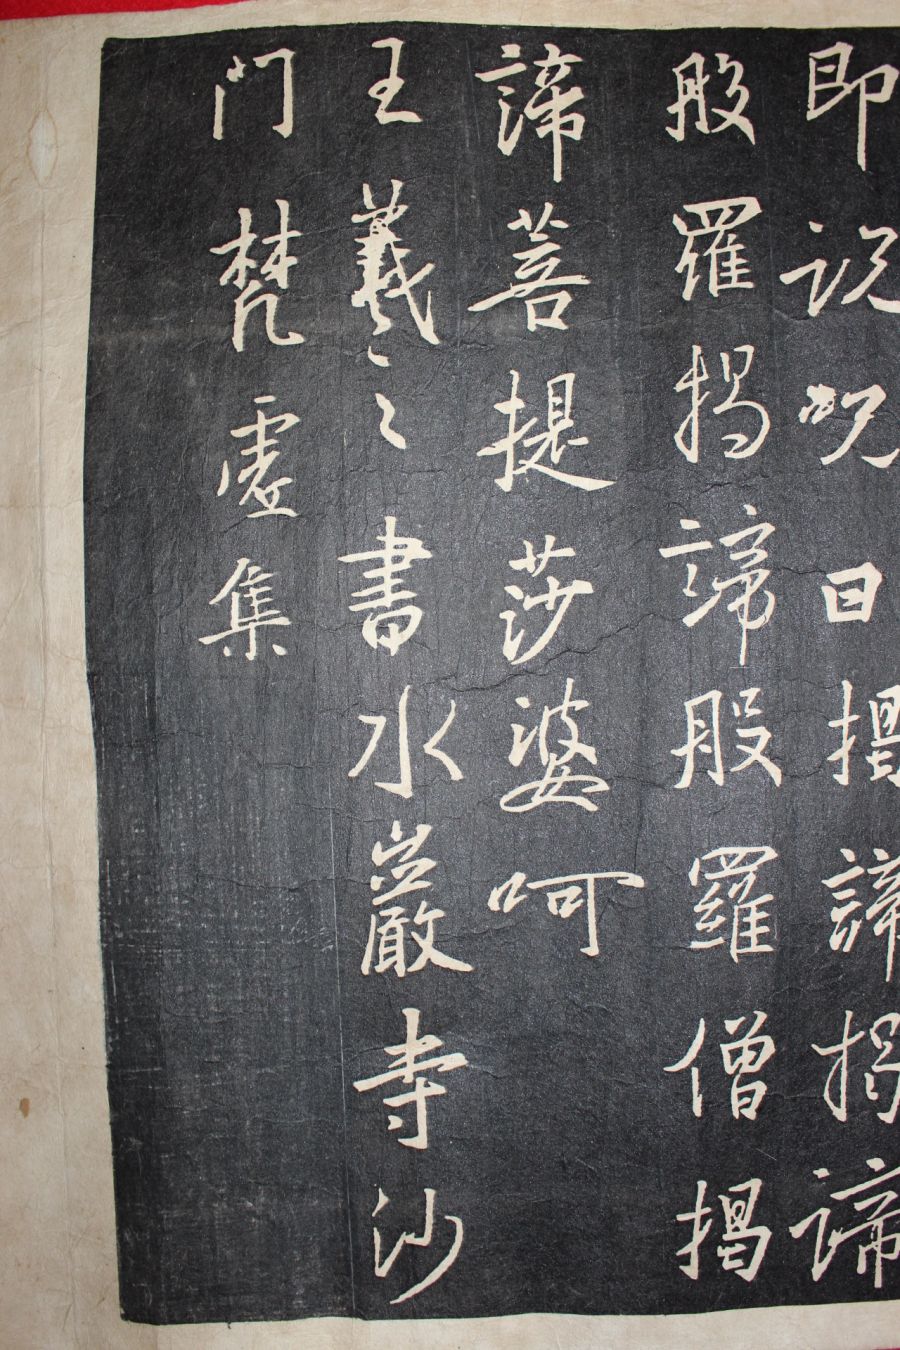 即說呪曰揭諦揭諦
般羅揭諦般羅僧揭
諦菩提莎婆呵
王羲之書水嚴寺沙
門梵虛集